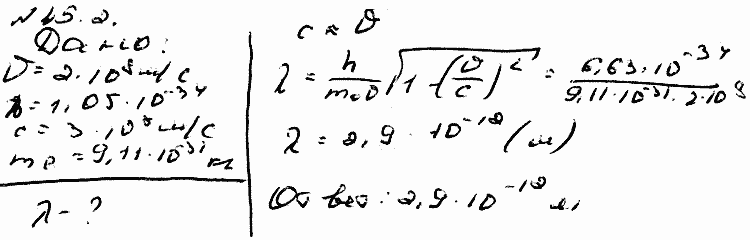 № 45.2.
Дано:
υ = 2·10⁸ м/с
ħ = 1,05·10⁻³⁴
c = 3·10⁸ м/с
m₀ = 9,11·10⁻³¹ кг
λ - ?
c ≈ υ
λ = h/(m₀υ) √(1 - (υ/c)²) = 6,63·10⁻³⁴/(9,11·10⁻³¹·2·10⁸)
λ = 2,9·10⁻¹² (м)
Ответ: 2,9·10⁻¹² м.